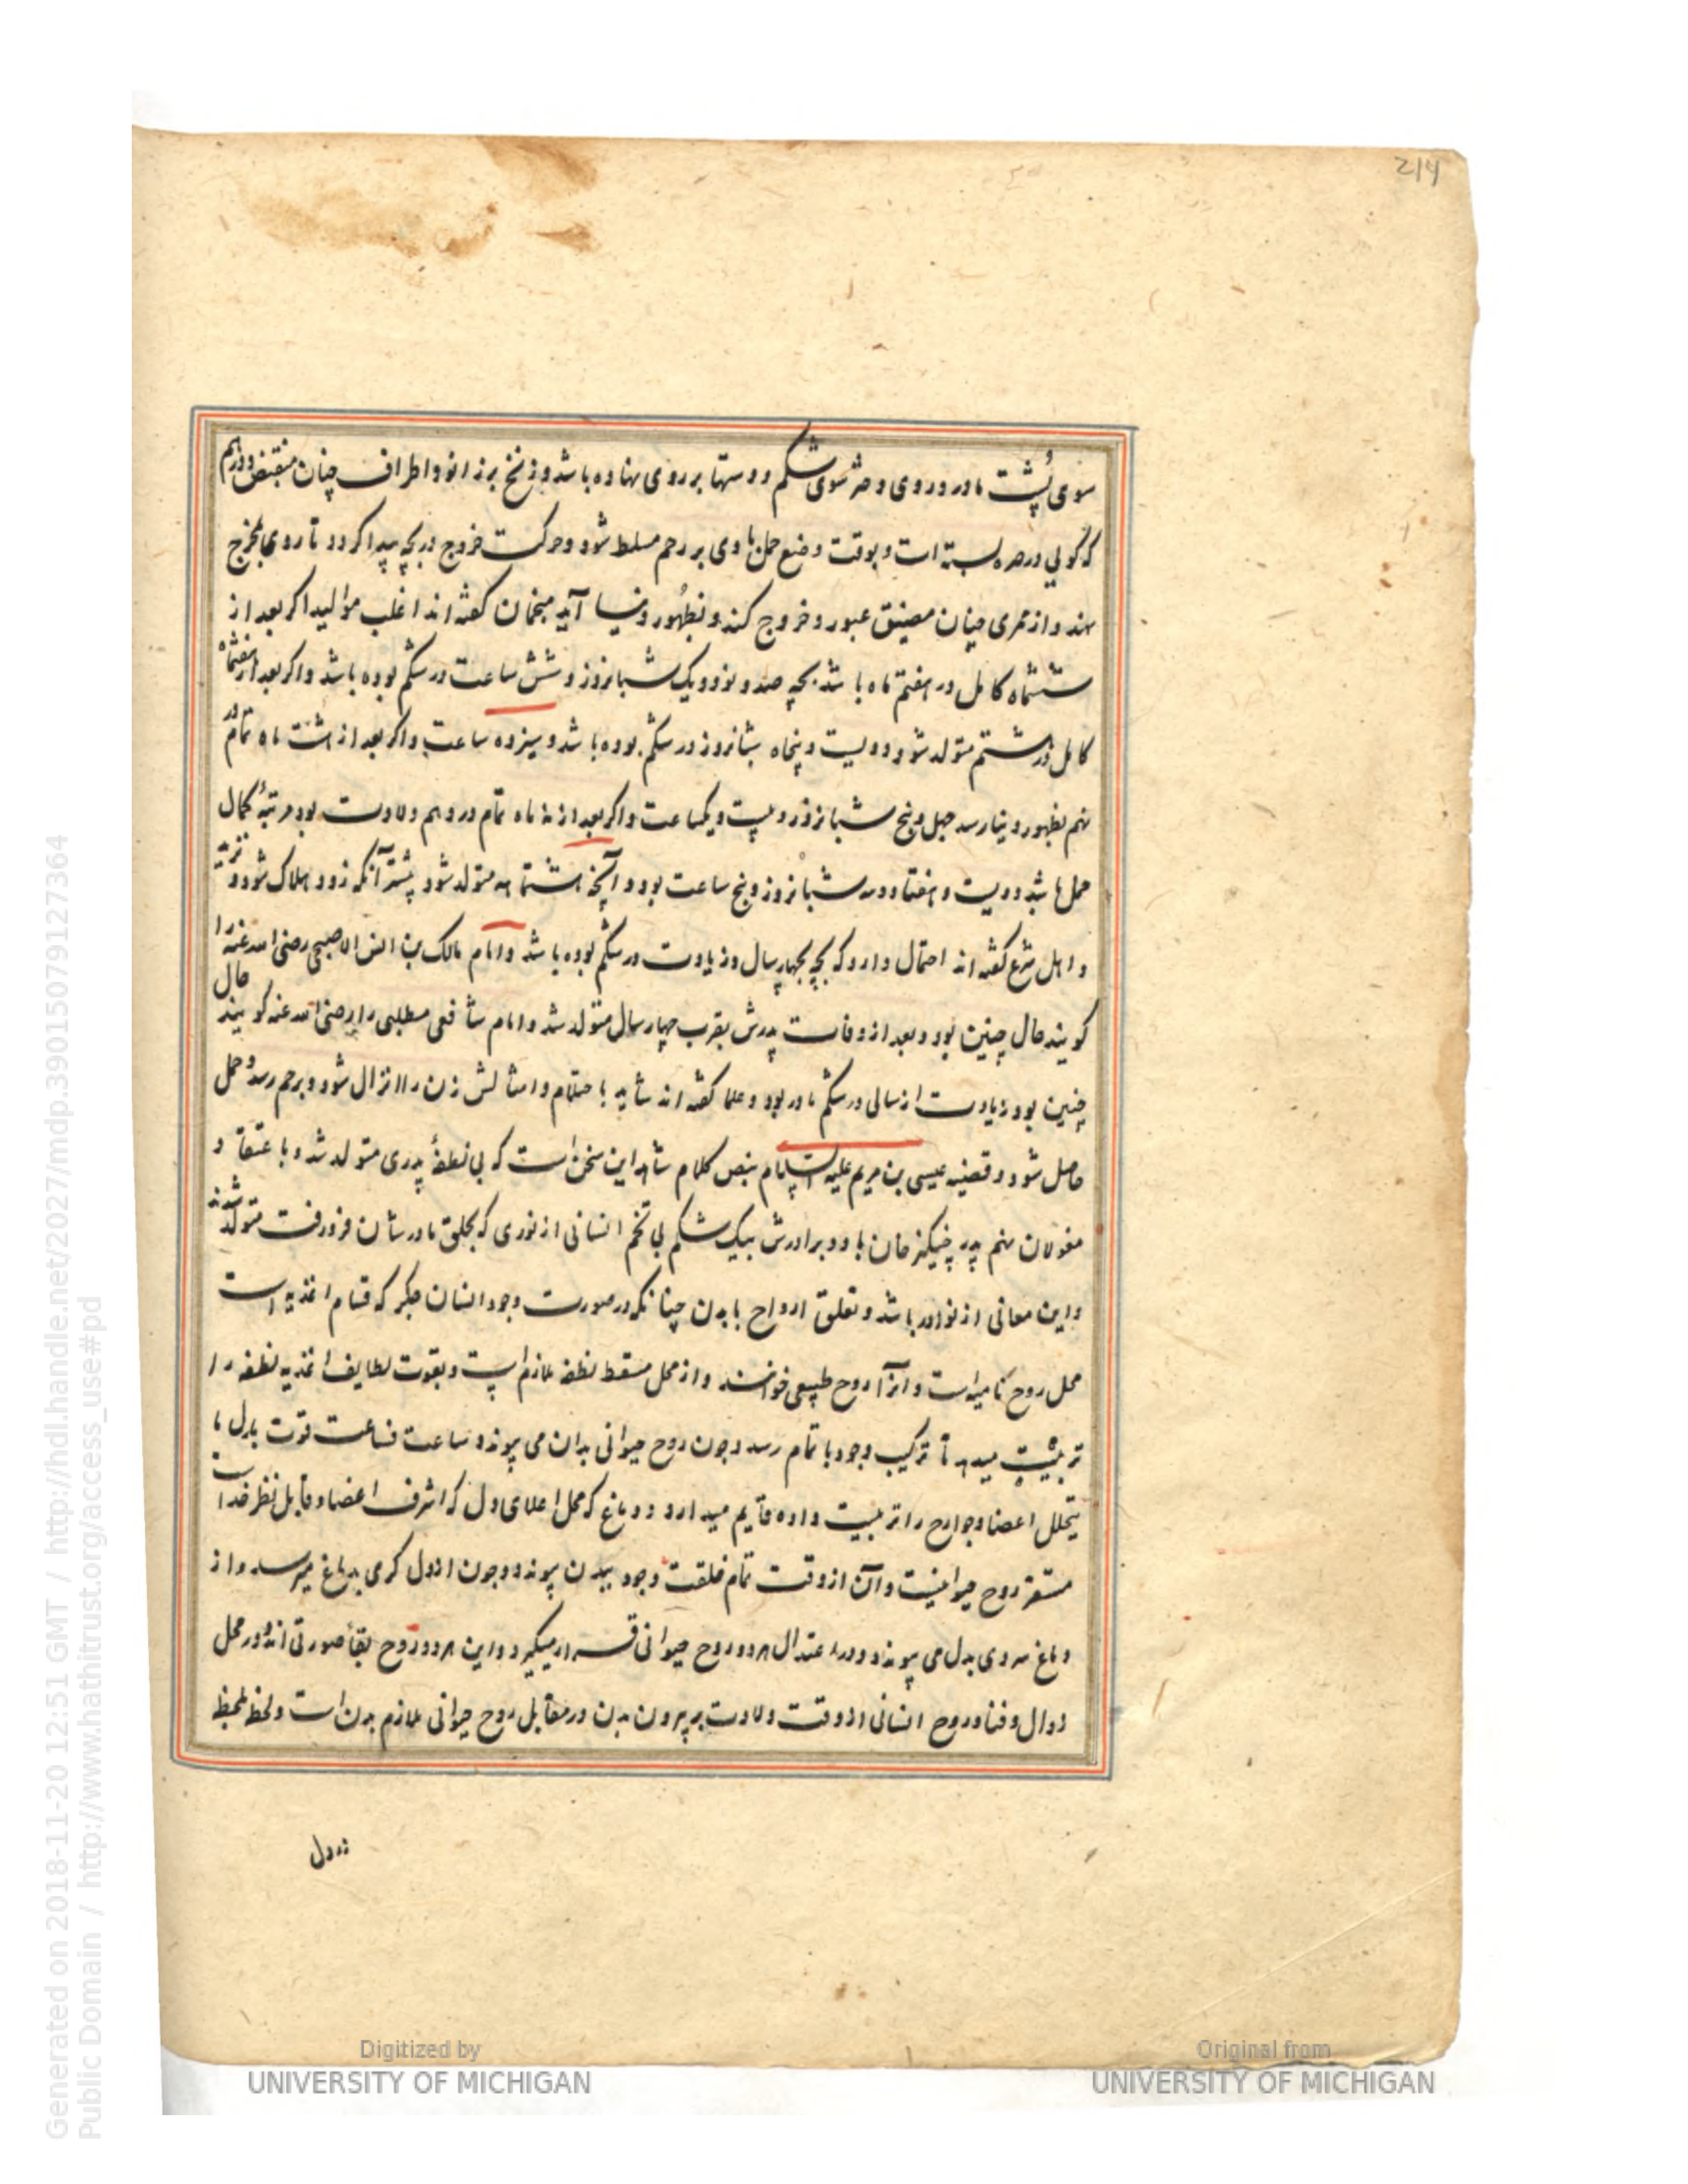 214
سوی پشت مادر و روی دختر سوی شکم و دستها بر روی نهاده باشد و زنخ بر زانو و اطراف چنان منقبض و درهم
که گویی در صره بسته است و بوقت وضع حمل بادی بر رحم مسلط شود و حرکت خروج در بچه پیدا کردد تا روی بمخرج
نهد و از ممری چنان مضیق عبور و خروج کند و بظهور دنیا آید منجمان کفته اند اغلب موالید اکر بعد از
ششماه کامل در هفتم ماه باشد بچه صد و نود و یک شبانروز و شش ساعت در شکم بوده باشد و اکر بعد از هفتماه
کامل در هشتم متولد شود دویست و پنجاه شبانروز در شکم بوده باشد و سیزده ساعت و اکر بعد از هشت ماه تمام در
نهم بظهور دنیا رسد چهل و پنج شبانروز و بیست و یکساعت و اکر بعد از نه ماه تمام در دهم ولادت بود مرتبهٔ کمال
حمل باشد دویست و هفتاد و سه شبانروز و پنج ساعت بود و آنچه هشتماهه متولد شود بیشتر آنکه زود هلاک شود
و اهل شرع کفته اند احتمال دارد که بچه بچهار سال و زیادت در شکم بوده باشد و امام مالک بن انس الاصبحی رضی الله عنه را
حال
کویند حال چنین بود و بعد از وفات پدرش بقرب چهار سال متولد شد و امام شافعی مطلبی را رضی الله عنه کویند
چنین بود زیادت از سالی در شکم مادر بود و علما کفته اند شاید باحتلام و امثالش زن را انزال شود و برحم رسد و حمل
حاصل شود و قضیه عیسی بن مریم علیه السلام بنص کلام شاهد این سخن است که بی نطفهٔ پدری متولد شد و باعتقاد
مغولان نهم پدر چنیکز خان با دو برادرش بیک شکم بی تخم انسانی از نوری که بحلق مادرشان فرو رفت متولد شدند
و این معانی از نوادر باشد و تعلق ارواح بابدن چنانکه در صورت وجود انسان جکر که قسام اغذیه است
محل روح نامیه است و آنرا روح طبیعی خوانند و از محل مسقط نطفه ملازم است و بقوت لطایف اغذیه نطفه را
تربیت میدهد تا ترکیب وجود باتمام رسد و چون روح حیوانی بدان می پیوندد ساعت فساعت قوت بدل ما
یتحلل اعضا و جوارح را تربیت داده قایم میدارد و دماغ که محل اعلای دل که اشرف اعضا و قابل نظر خداست
مستقر روح حیوانیست و آن از وقت تمام خلقت وجود ببدن پیوندد و چون از دل کرمی بدماغ میرسد و از
دماغ سردی بدل می پیوندد و در اعتدال هر دو روح حیوانی قرار میکیرد و این هر دو روح بقاء صورتی اند و در محل
زوال و فنا و روح انسانی از وقت ولادت بر بیرون بدن در مقابل روح حیوانی ملازم بدن است و لحظ بلحظ
Generated on 2018-11-20 12:51 GMT / http://hdl.handle.net/2027/mdp.39015079127364
Public Domain / http://www.hathitrust.org/access_use#pd
Digitized by
UNIVERSITY OF MICHIGAN
Original from
UNIVERSITY OF MICHIGAN